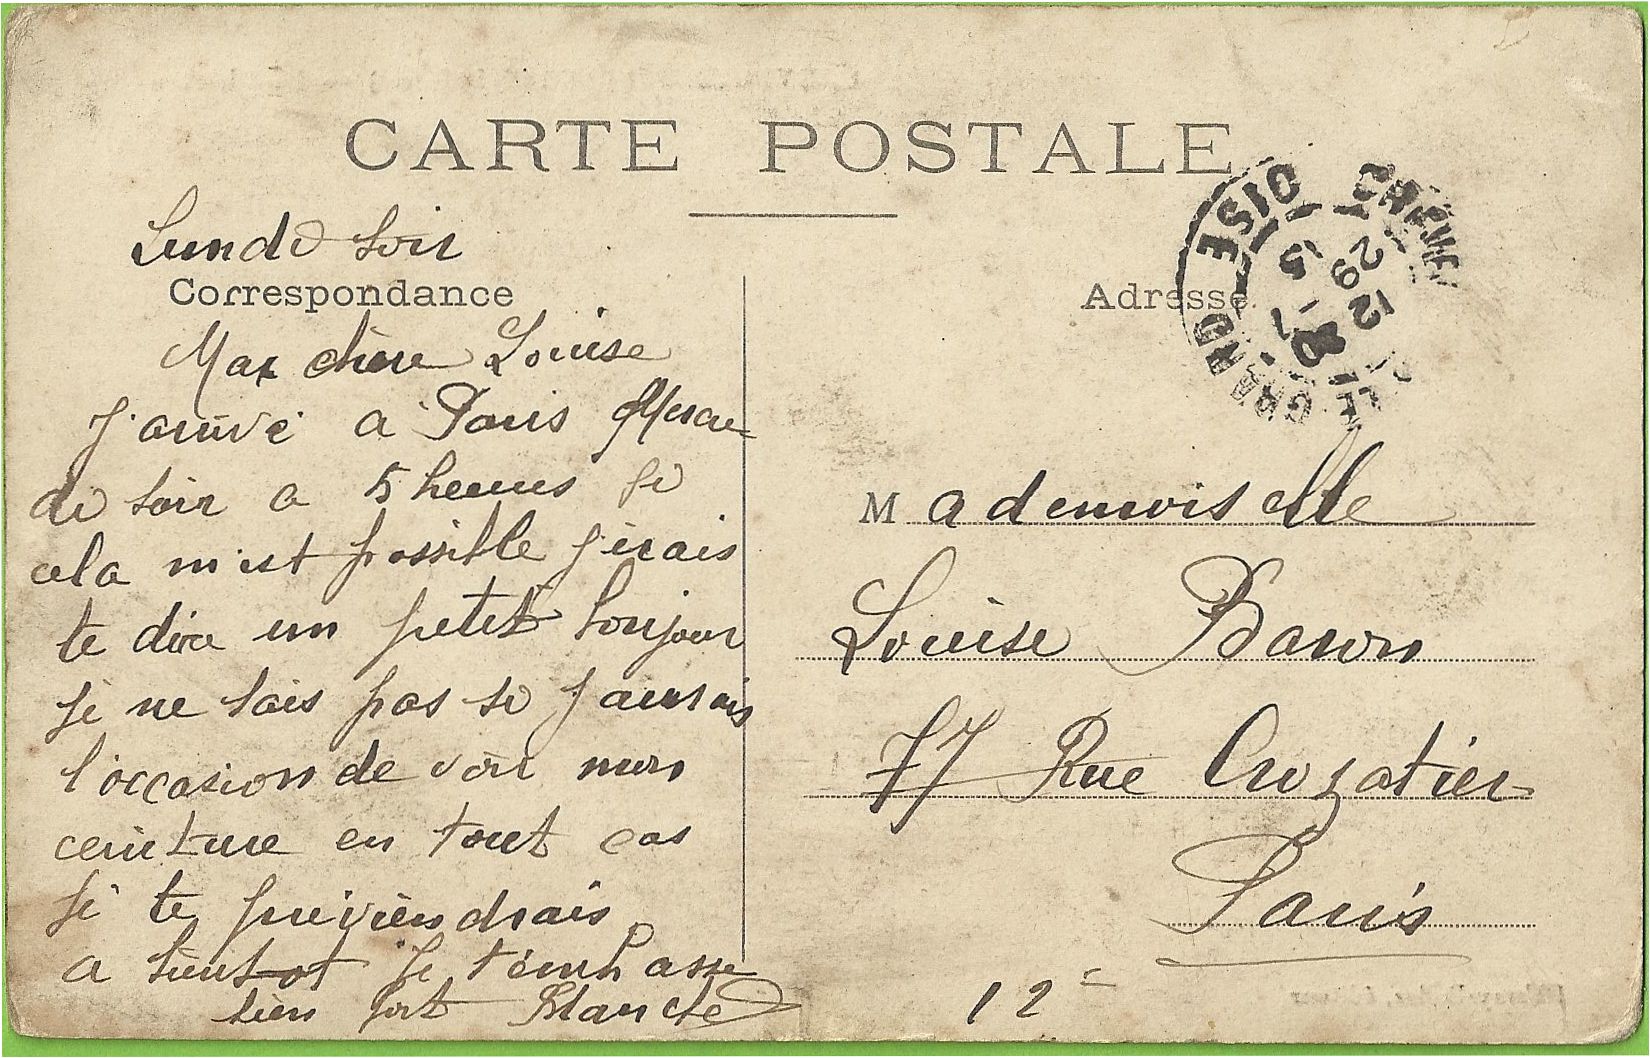 CARTE POSTALE
Lundi soir
Correspondance
Ma chère Louise
J'arrive à Paris Mercre
di soir a 5 heures si
cela m'est possible j'irais
te dire un petit bonjour
je ne sais pas si j'aurais
l'occasion de voir mon
ceinture en tout cas
je te préviendrais
a bientot je t'embrasse
bien fort Blanche
Adresse
CRÈVECŒUR LE GRAND OISE
29
12
M ademoiselle
Louise Baron
77 Rue Crozatier
Paris
12e